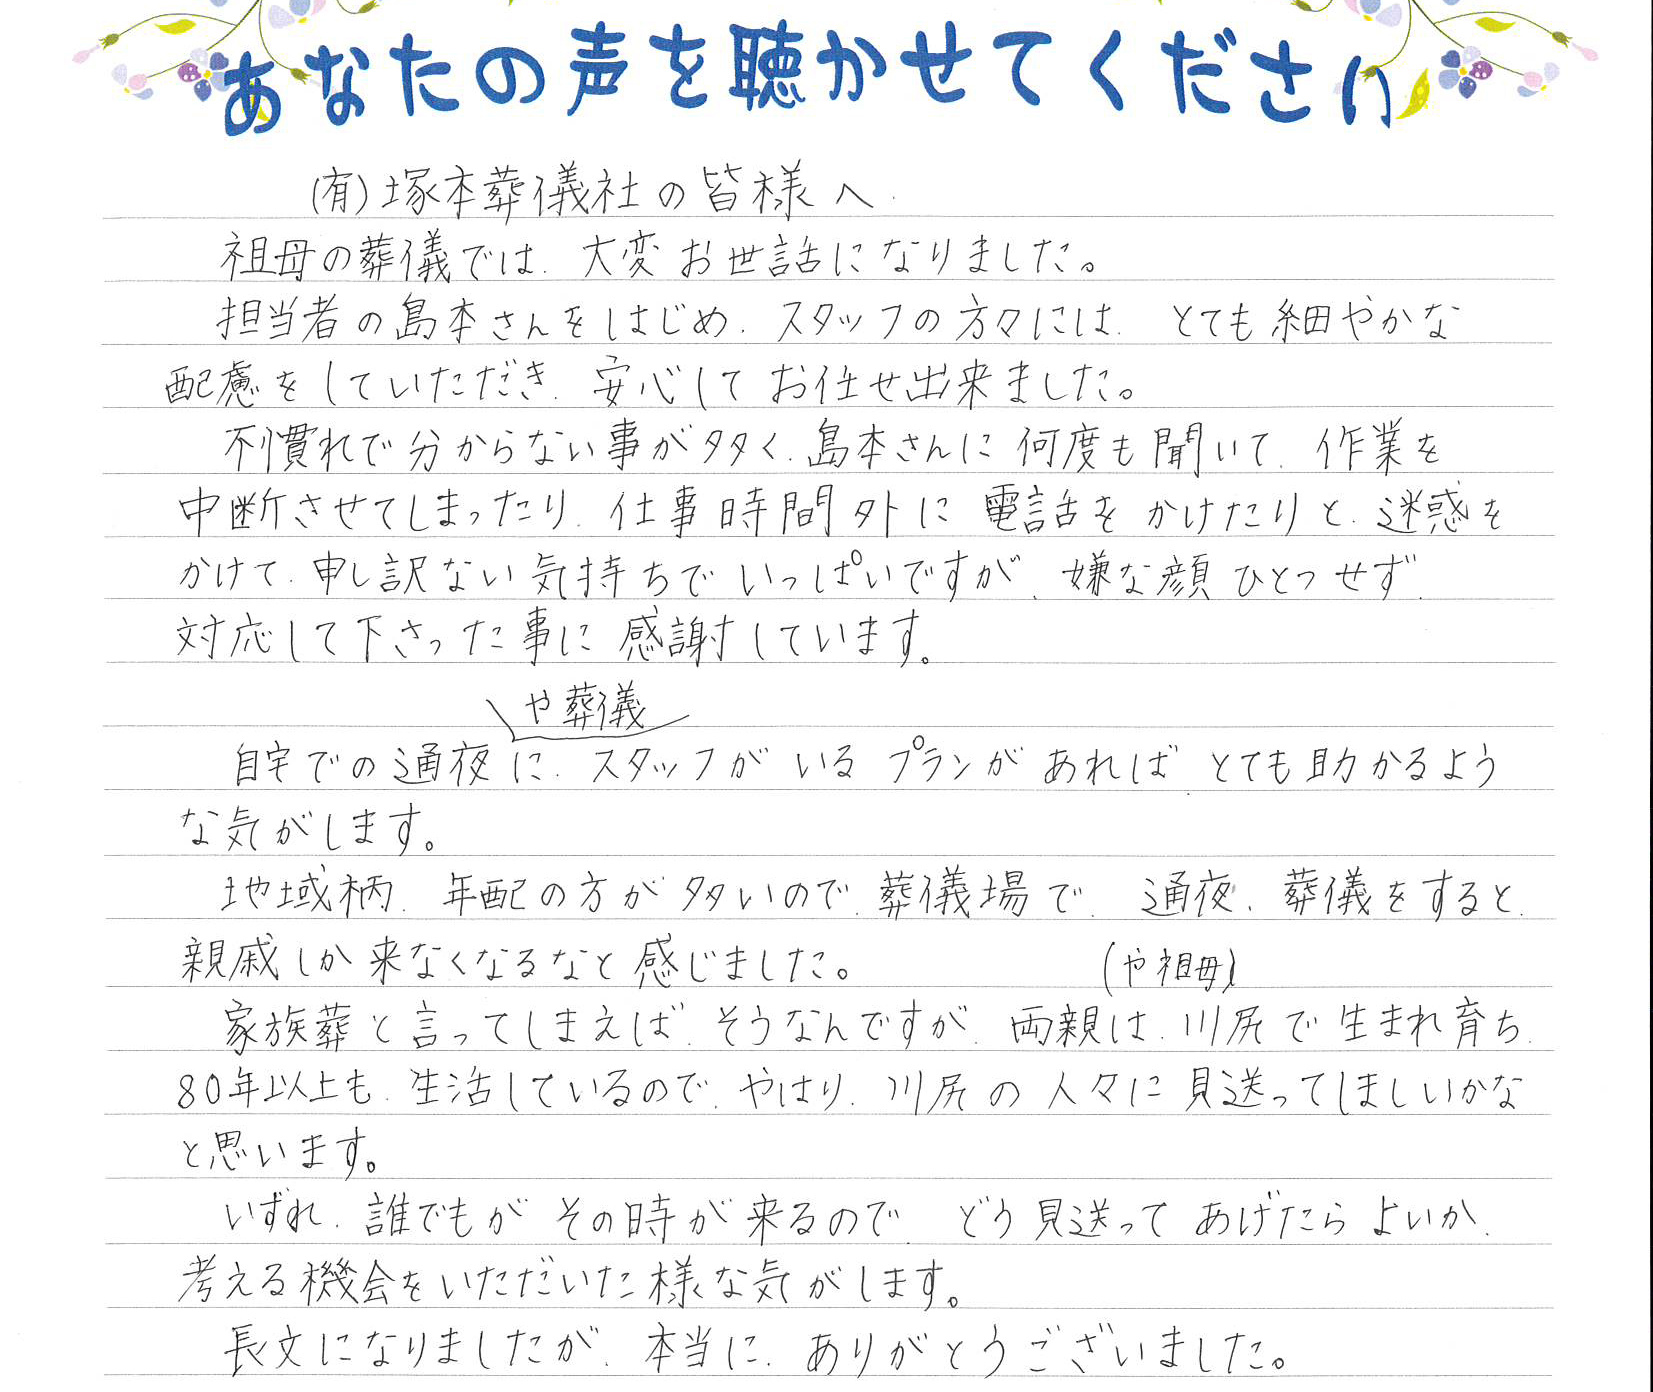 あなたの声を聴かせてください
(有)塚本葬儀社の皆様へ
祖母の葬儀では、大変お世話になりました。
担当者の島本さんをはじめ、スタッフの方々には、とても細やかな
配慮をしていただき、安心してお任せ出来ました。
不慣れで分からない事が多く、島本さんに何度も聞いて、作業を
中断させてしまったり、仕事時間外に電話をかけたりと、迷惑を
かけて、申し訳ない気持ちでいっぱいですが、嫌な顔ひとつせず、
対応して下さった事に感謝しています。
や葬儀
自宅での通夜に、スタッフがいるプランがあれば、とても助かるよう
な気がします。
地域柄、年配の方が多いので、葬儀場で、通夜、葬儀をすると、
親戚しか来なくなるなと感じました。
(や祖母)
家族葬と言ってしまえば、そうなんですが、両親は、川尻で生まれ育ち、
80年以上も、生活しているので、やはり、川尻の人々に見送ってほしいかな
と思います。
いずれ、誰でもがその時が来るので、どう見送ってあげたらよいか、
考える機会をいただいた様な気がします。
長文になりましたが、本当に、ありがとうございました。